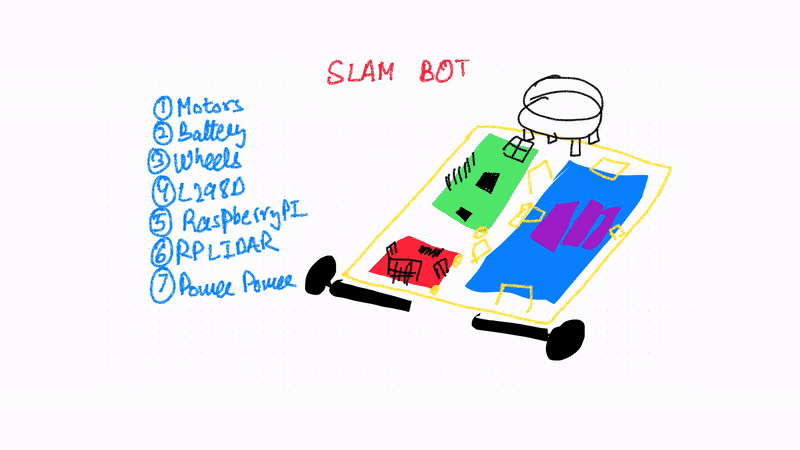 SLAM BOT
① Motors
② Battery
③ Wheels
④ L298D
⑤ RaspberryPI
⑥ RPLIDAR
⑦ Power Power